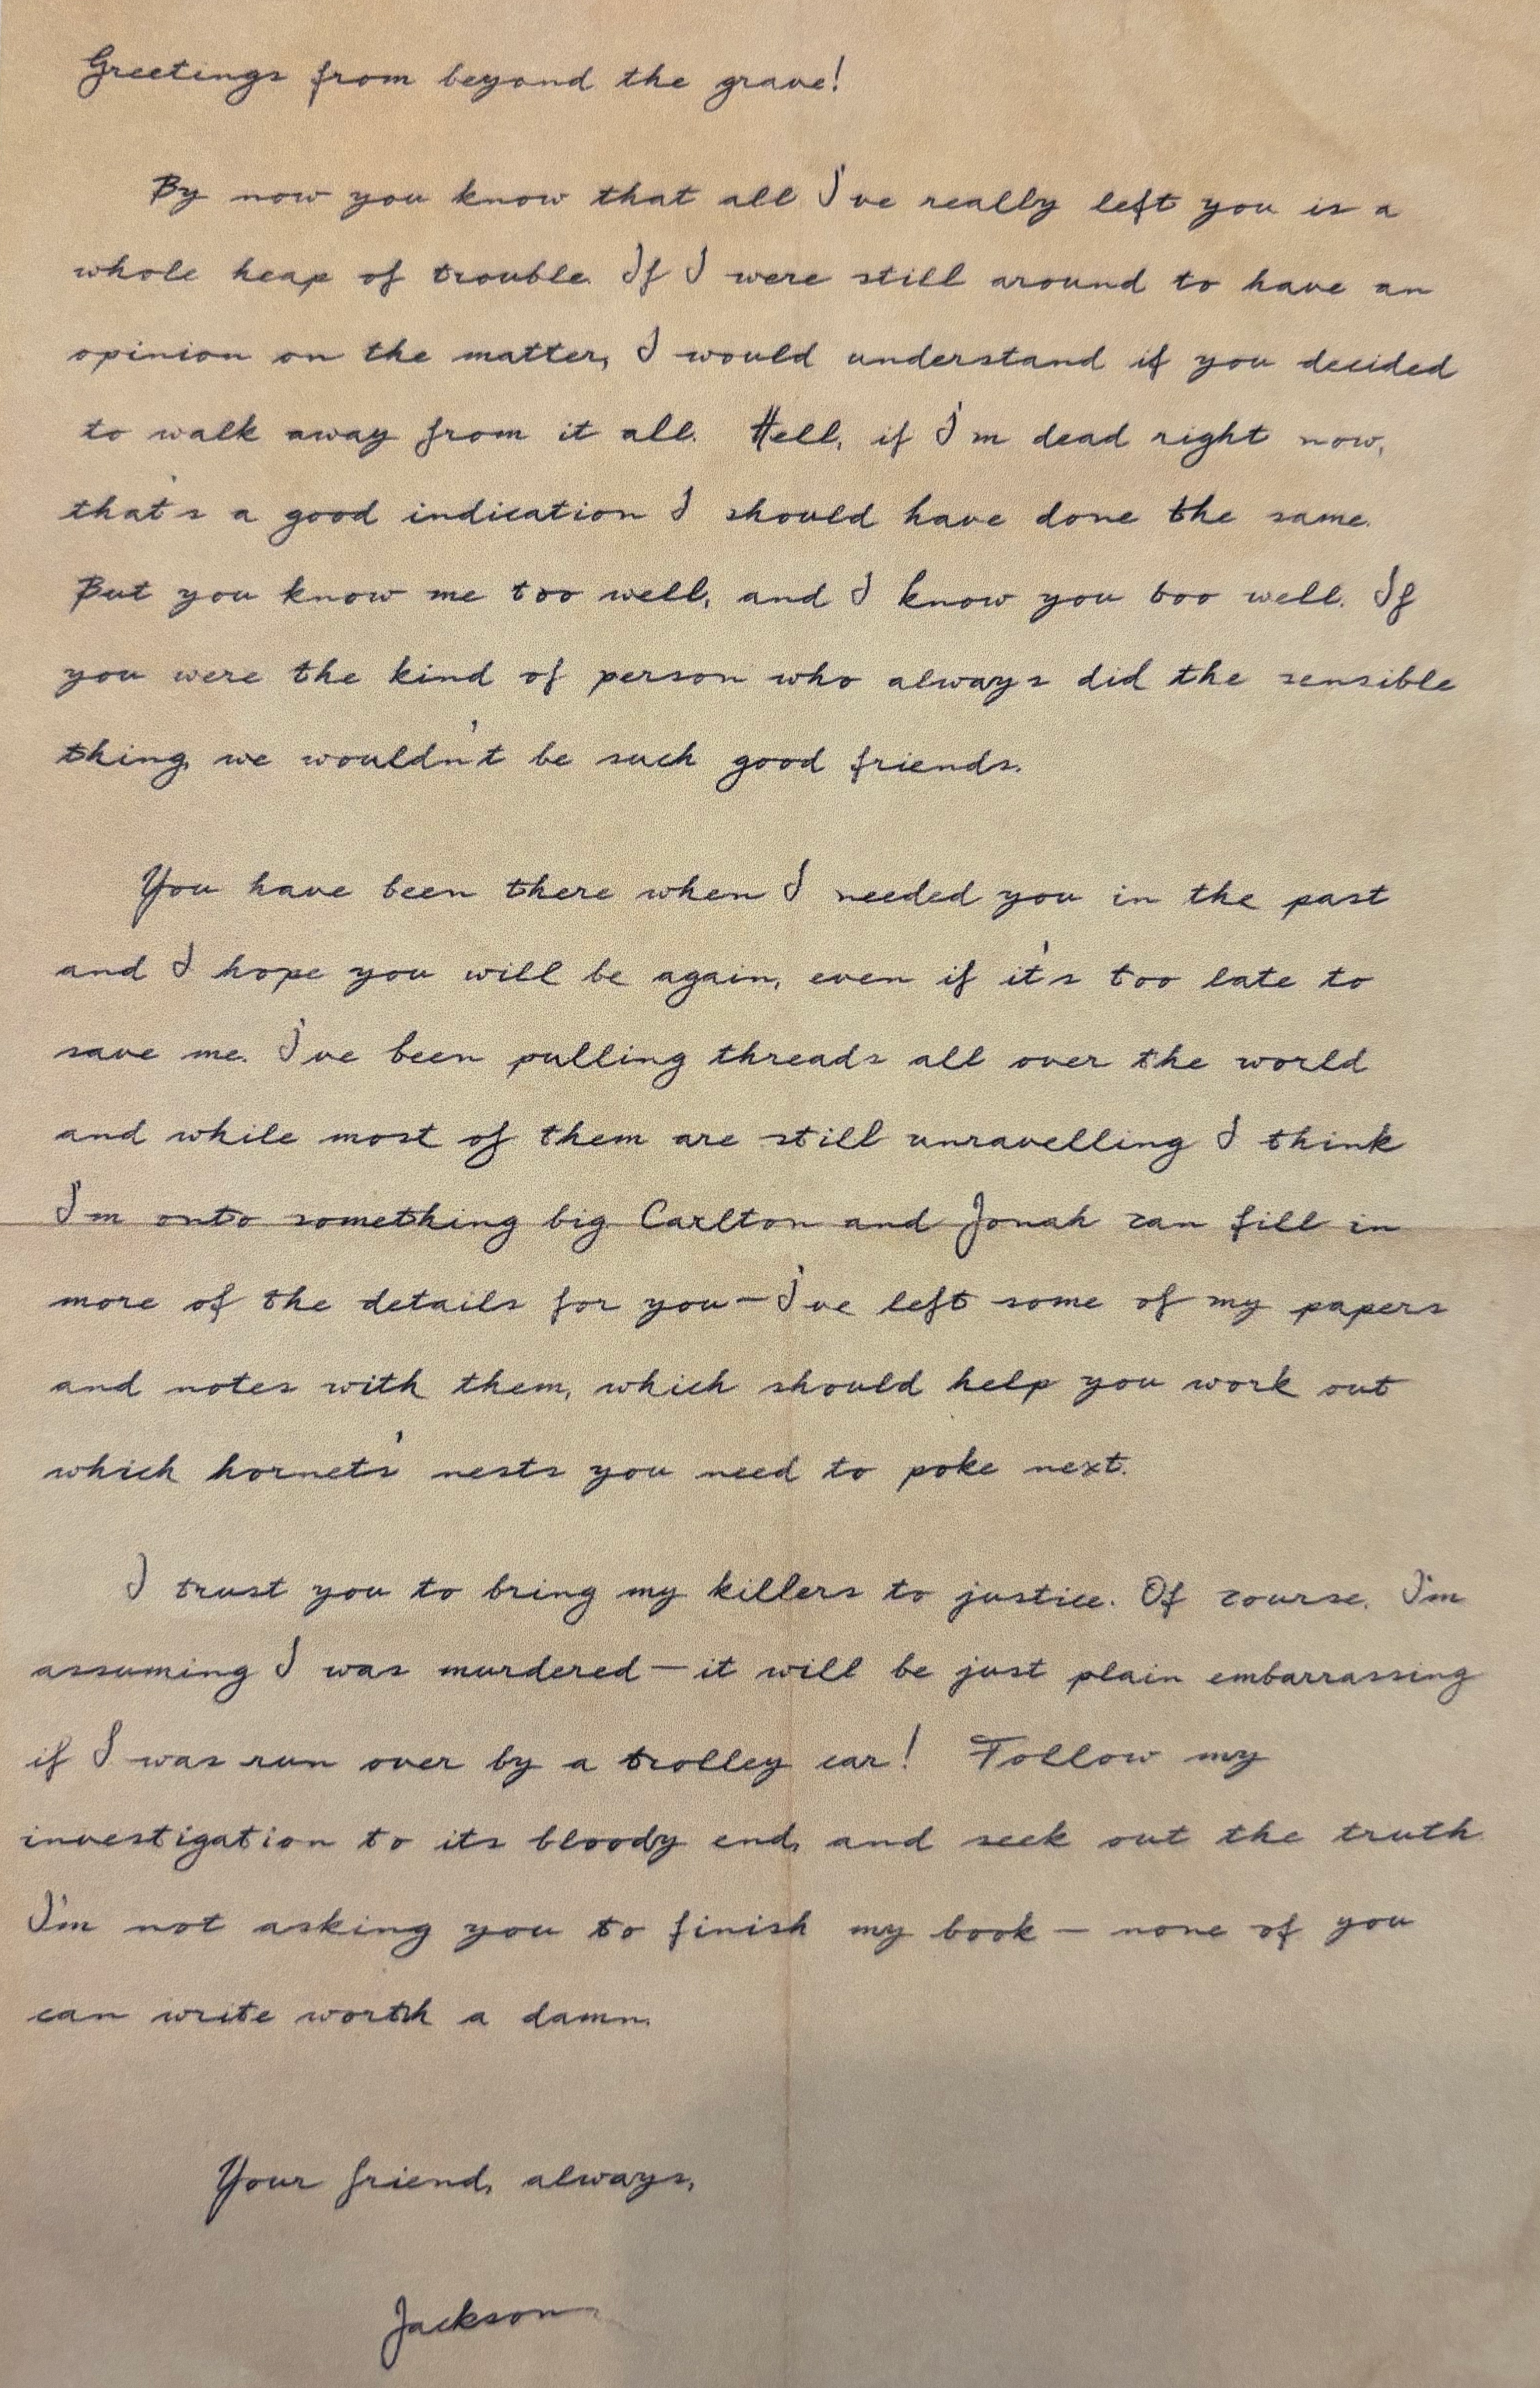 Greetings from beyond the grave!
By now you know that all I've really left you is a
whole heap of trouble. If I were still around to have an
opinion on the matter, I would understand if you decided
to walk away from it all. Hell, if I'm dead right now,
that's a good indication I should have done the same.
But you know me too well, and I know you too well. If
you were the kind of person who always did the sensible
thing, we wouldn't be such good friends.
You have been there when I needed you in the past
and I hope you will be again, even if it's too late to
save me. I've been pulling threads all over the world
and while most of them are still unravelling I think
I'm onto something big. Carlton and Jonah can fill in
more of the details for you—I've left some of my papers
and notes with them, which should help you work out
which hornets' nests you need to poke next.
I trust you to bring my killers to justice. Of course, I'm
assuming I was murdered—it will be just plain embarrassing
if I was run over by a trolley car! Follow my
investigation to its bloody end, and seek out the truth.
I'm not asking you to finish my book — none of you
can write worth a damn.
Your friend, always,
Jackson